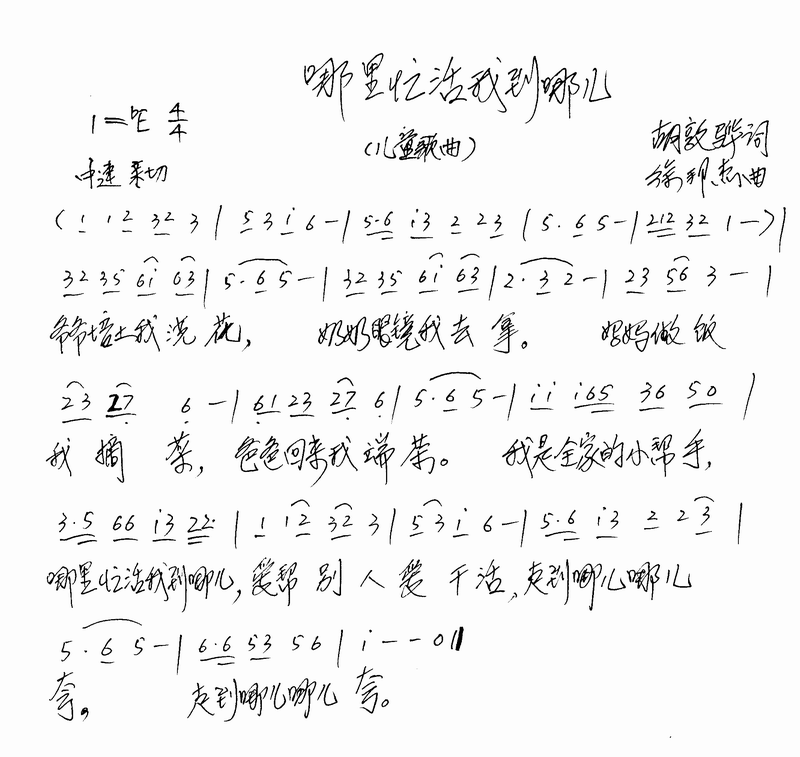 哪里忙活我到哪儿
1=♭E 4/4
(儿童歌曲)
胡敦骅词
中速 亲切
徐邦杰曲
(1 12 32 3 | 5 3 i 6 - | 5·6 i3 2 23 | 5·6 5 - | 212 32 1 - ) |
32 35 6i 63 | 5·6 5 - | 32 35 6i 63 | 2·3 2 - | 23 56 3 - |
爷爷培土我浇花, 奶奶眼镜我去拿。 妈妈做饭
23 27 6 - | 61 23 27 6 | 5·6 5 - | ii i65 36 50 |
我摘菜, 爸爸回来我端茶。 我是全家的小帮手,
3·5 66 i3 22· | 1 i2 32 3 | 5 3 i 6 - | 5·6 i3 2 23 |
哪里忙活我到哪儿, 爱帮别人爱干活, 走到哪儿哪儿
5·6 5 - | 6·6 53 56 | i - - 0 ‖
夸, 走到哪儿哪儿夸。